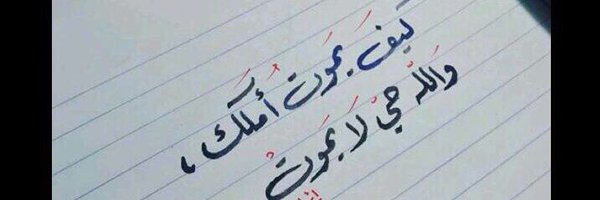 كَيفَ يَمُوت أُملكَ ،
وَاللهْ حَيْ لَا يَمُوتُ